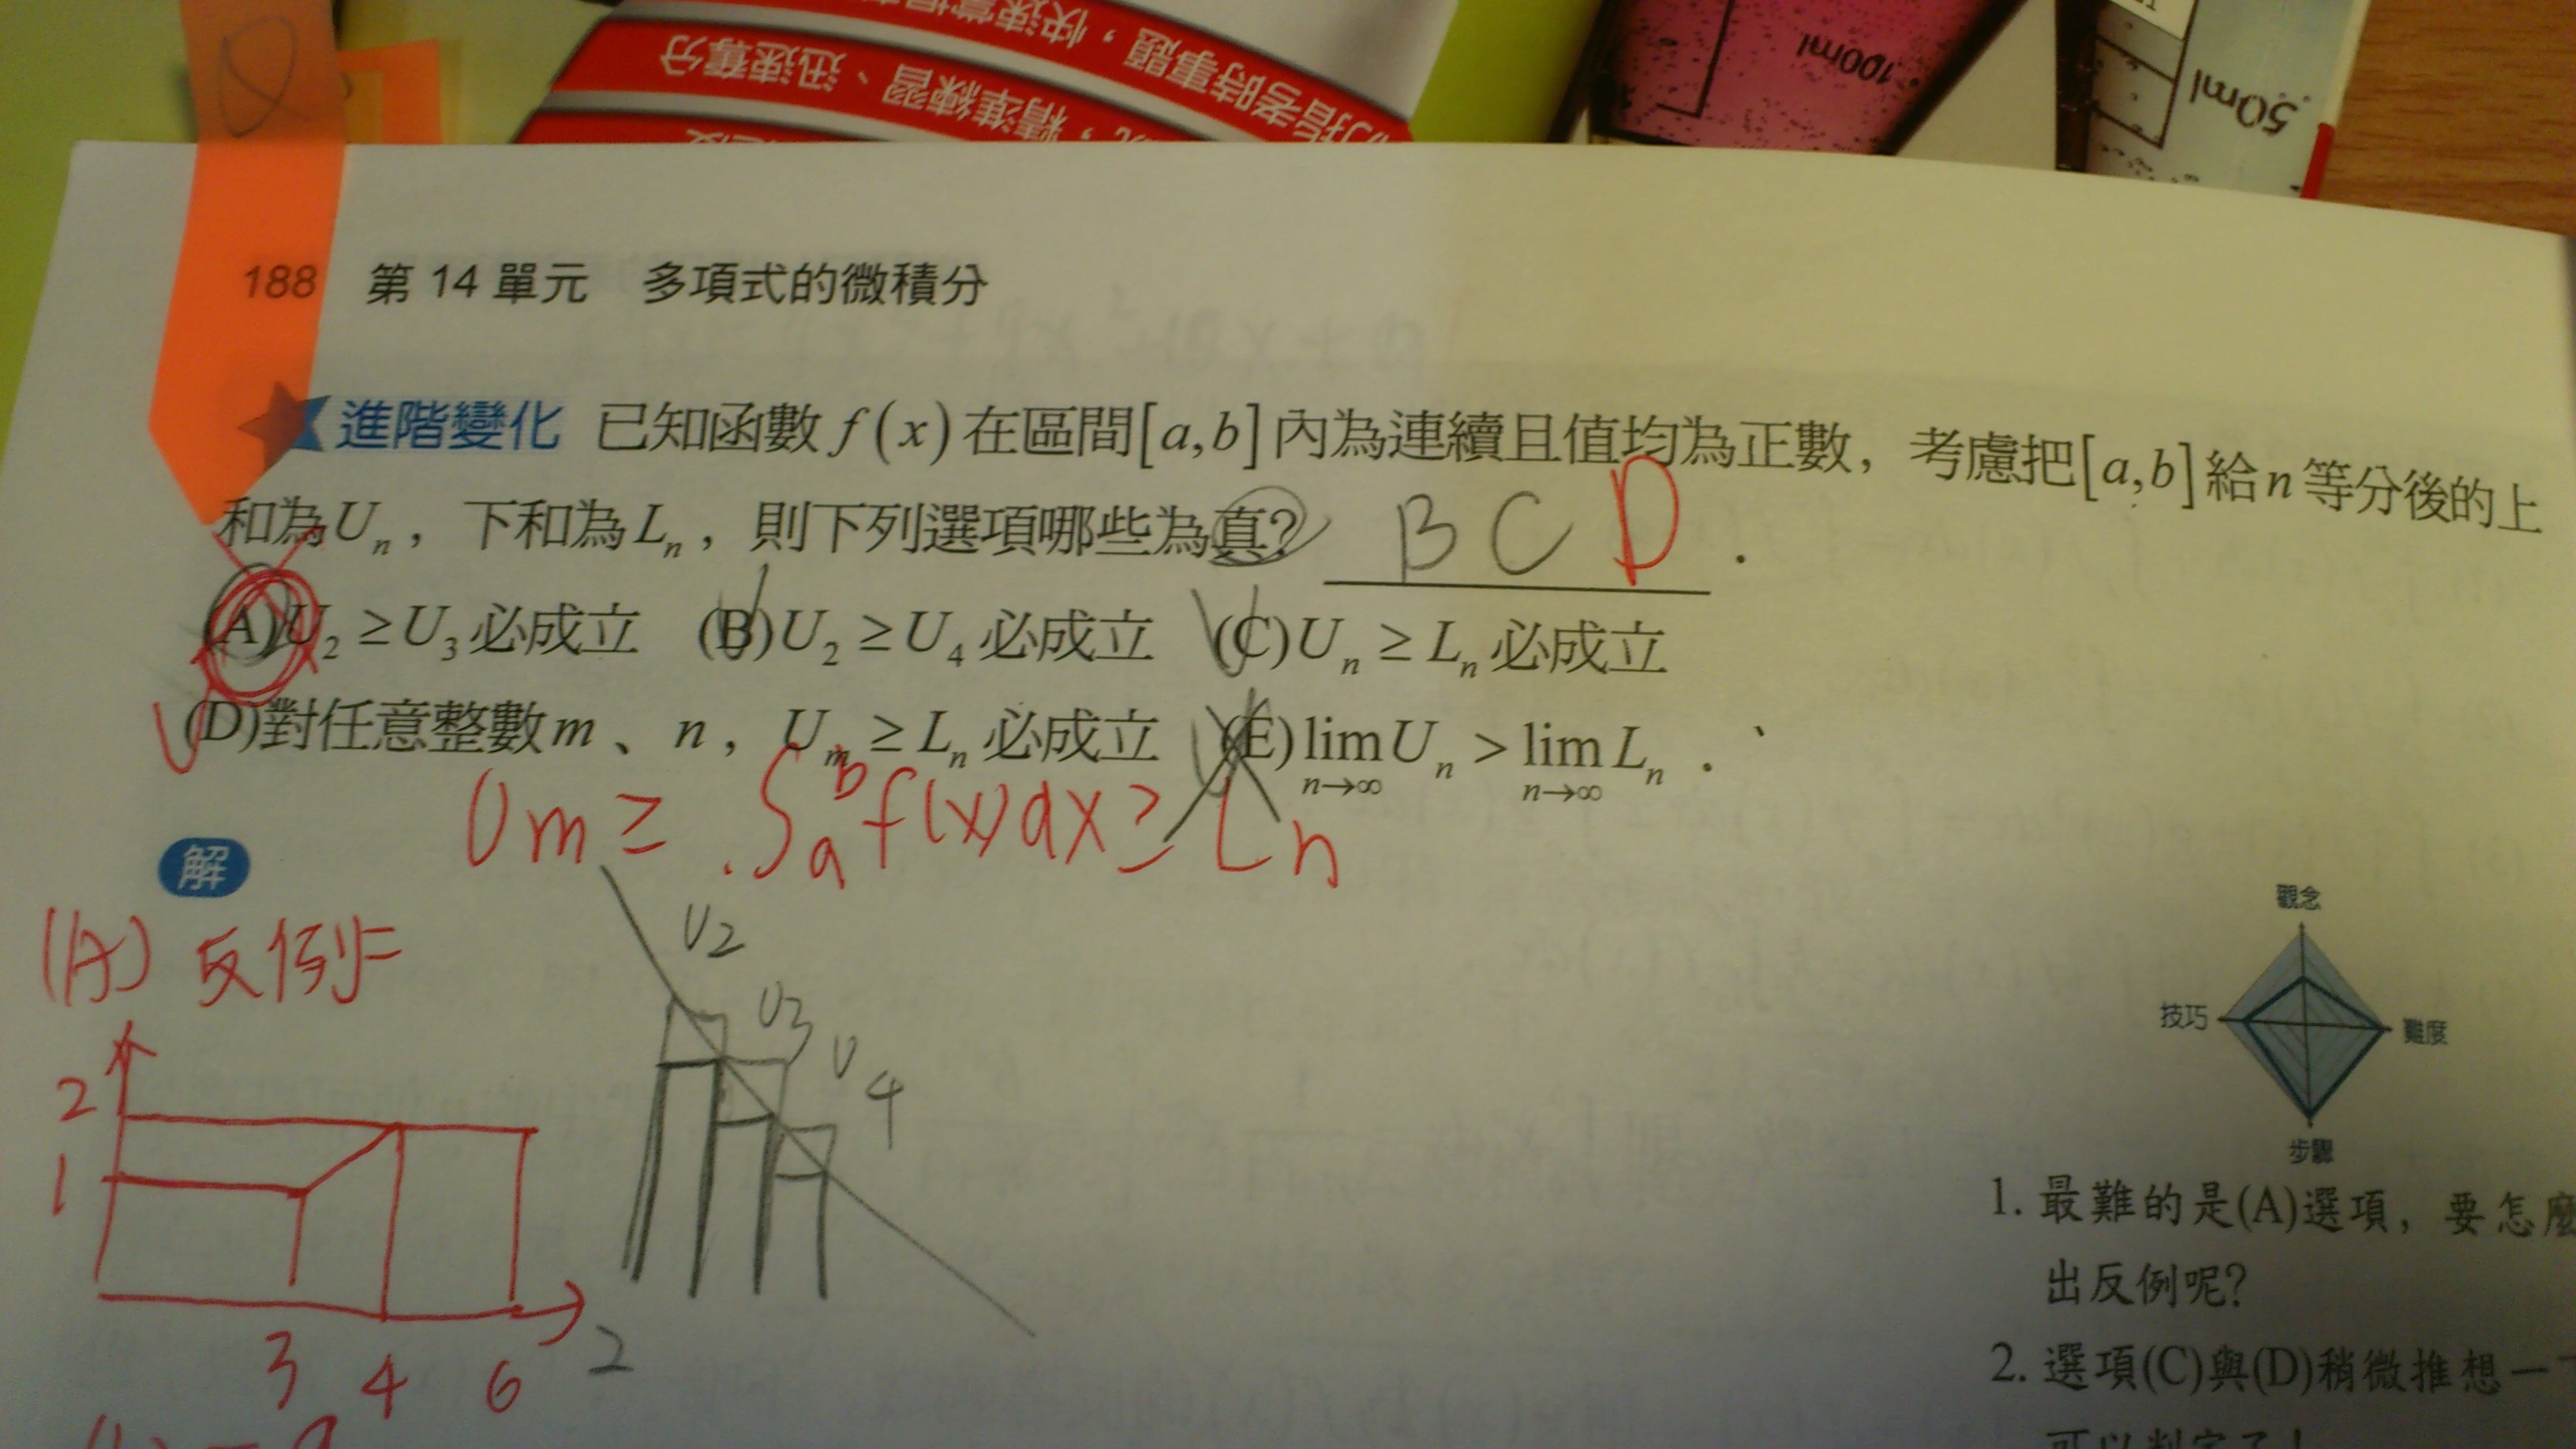 快速掌握
指考時事題，
精準練習、迅速奪分
100ml
50ml
188 第 14 單元 多項式的微積分
進階變化 已知函數 f(x) 在區間[a,b]內為連續且值均為正數，考慮把[a,b]給n等分後的上
和為Uₙ，下和為Lₙ，則下列選項哪些為真? B C D .
(A)U₂ ≥ U₃ 必成立 (B)U₂ ≥ U₄ 必成立 (C)Uₙ ≥ Lₙ 必成立
(D)對任意整數m、n，Uₘ ≥ Lₙ 必成立 (E) lim n→∞ Uₙ > lim n→∞ Lₙ .
Um ≥ ∫ₐᵇ f(x)dx ≥ Ln
解
(A) 反例=
U2
U3
U4
2
1
3 4 6
2
觀念
技巧 難度
步驟
1. 最難的是(A)選項，要怎麼
出反例呢?
2. 選項(C)與(D)稍微推想一
可以判定了!